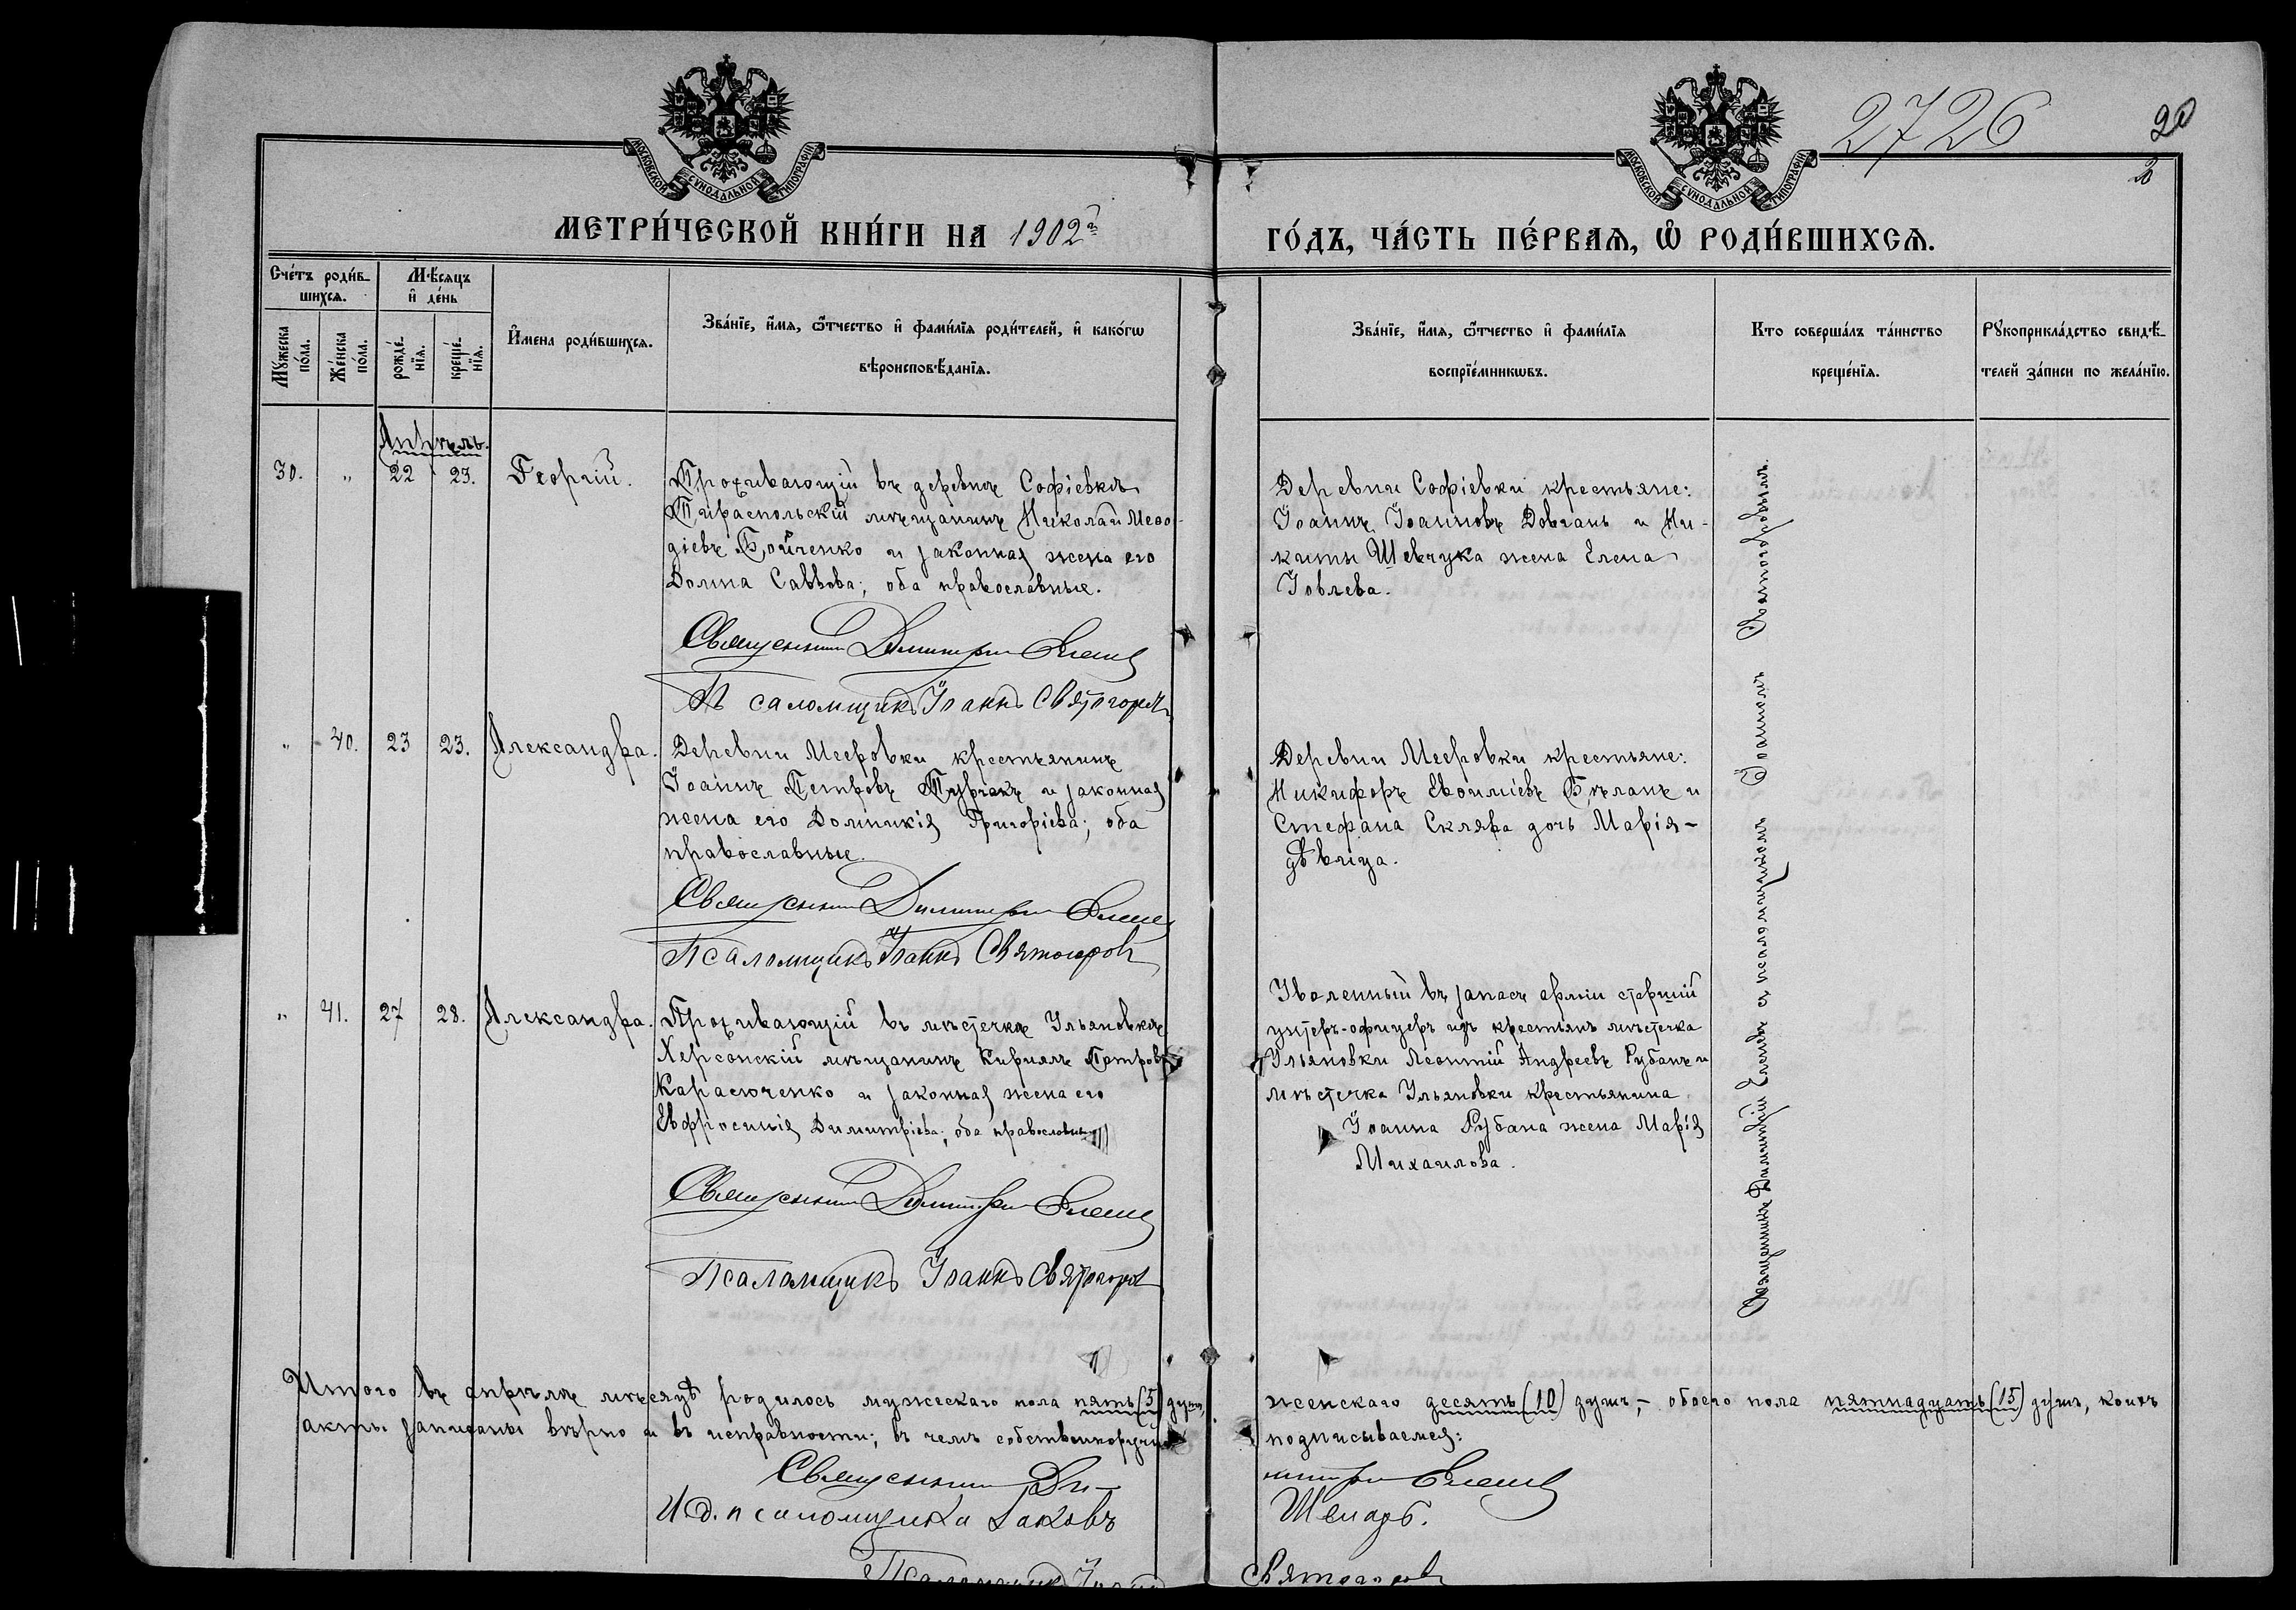 МОСКОВСКОЙ СУНОДАЛЬНОЙ ТИПОГРАФІИ
МОСКОВСКОЙ СУНОДАЛЬНОЙ ТИПОГРАФІИ
2726
20
МЕТРИ́ЧЕСКОЙ КНИ́ГИ НА 1902й
ГО́ДЪ, ЧА́СТЬ ПЕ́РВАЯ, Ѽ РОДИ́ВШИХСЯ.
Сче́тъ роди́в-
шихся.
Мꙋ́жеска по́ла.
Же́нска по́ла.
Мѣ́сяцъ
и҆ де́нь
рожде́-
нїя.
креще́-
нїя.
И҆мена роди́вшихся.
Зва́нїе, и҆́мя, ѻ҆́тчество и҆ фами́лїя роди́телей, и҆ како́гѡ
вѣроисповѣ́данїя.
Зва́нїе, и҆́мя, ѻ҆́тчество и҆ фами́лїя
воспрїе́мникѡвъ.
Кто соверша́лъ та́инство
креще́нїя.
Рꙋкоприкла́дство свидѣ́-
телей за́писи по жела́нїю.
Апрѣль.
30. „ 22 23. Георгій.
Проживающій въ деревнѣ Софіевкѣ
Тираспольскій мѣщанинъ Николай Меѳо-
діевъ Бойченко и законная жена его
Домна Саввова; оба православные.
Священникъ Димитрій
Псаломщикъ Іоаннъ Святогоровъ
Деревни Софіевки крестьяне:
Іоаннъ Іоанновъ Довгань и Ни-
киты Шевчука жена Елена
Іовлева.
„ 40. 23 23. Александра.
Деревни Мееровки крестьянинъ
Іоаннъ Петровъ Турчакъ и законная
жена его Домникія Григоріева; оба
православные.
Священникъ Димитрій
Псаломщикъ Іоаннъ Святогоровъ
Деревни Мееровки крестьяне:
Никифоръ Евѳиміевъ Бѣланъ и
Стефана Скляра дочь Марія –
дѣвица.
„ 41. 27 28. Александра.
Проживающій въ мѣстечкѣ Ульяновкѣ
Херсонскій мѣщанинъ Кириллъ Петровъ
Карасюченко и законная жена его
Евфросинія Димитріева; оба православные
Священникъ Димитрій
Псаломщикъ Іоаннъ Святогоровъ
Уволенный въ запасъ арміи старшій
унтеръ-офицеръ изъ крестьянъ мѣстечка
Ульяновки Леонтій Андреевъ Рубанъ и
мѣстечка Ульяновки крестьянина
Іоанна Рубана жена Марія
Михаилова.
Священникъ Димитрій съ псаломщикомъ Іоанномъ Святогоровымъ
Итого въ апрѣлѣ мѣсяцѣ родилось мужескаго пола пять (5) душъ, женскаго десять (10) душъ, – обоего пола пятнадцать (15) душъ, коихъ
акты записаны вѣрно и въ исправности; въ чемъ собственноручно подписываемся:
Священникъ Димитрій
И. д. псаломщика Іаковъ
Псаломщикъ Іоаннъ Святогоровъ